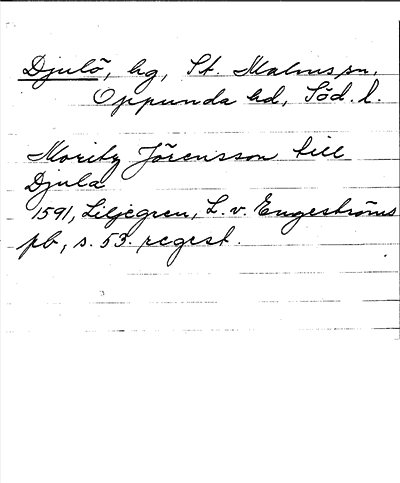 Djulö, hg, St. Malms sn,
Oppunda hd, Söd. l.
Moritz Jörensson till
Djula
1591, Liljegren, L. v. Engeströms
pb, s. 53. regest.